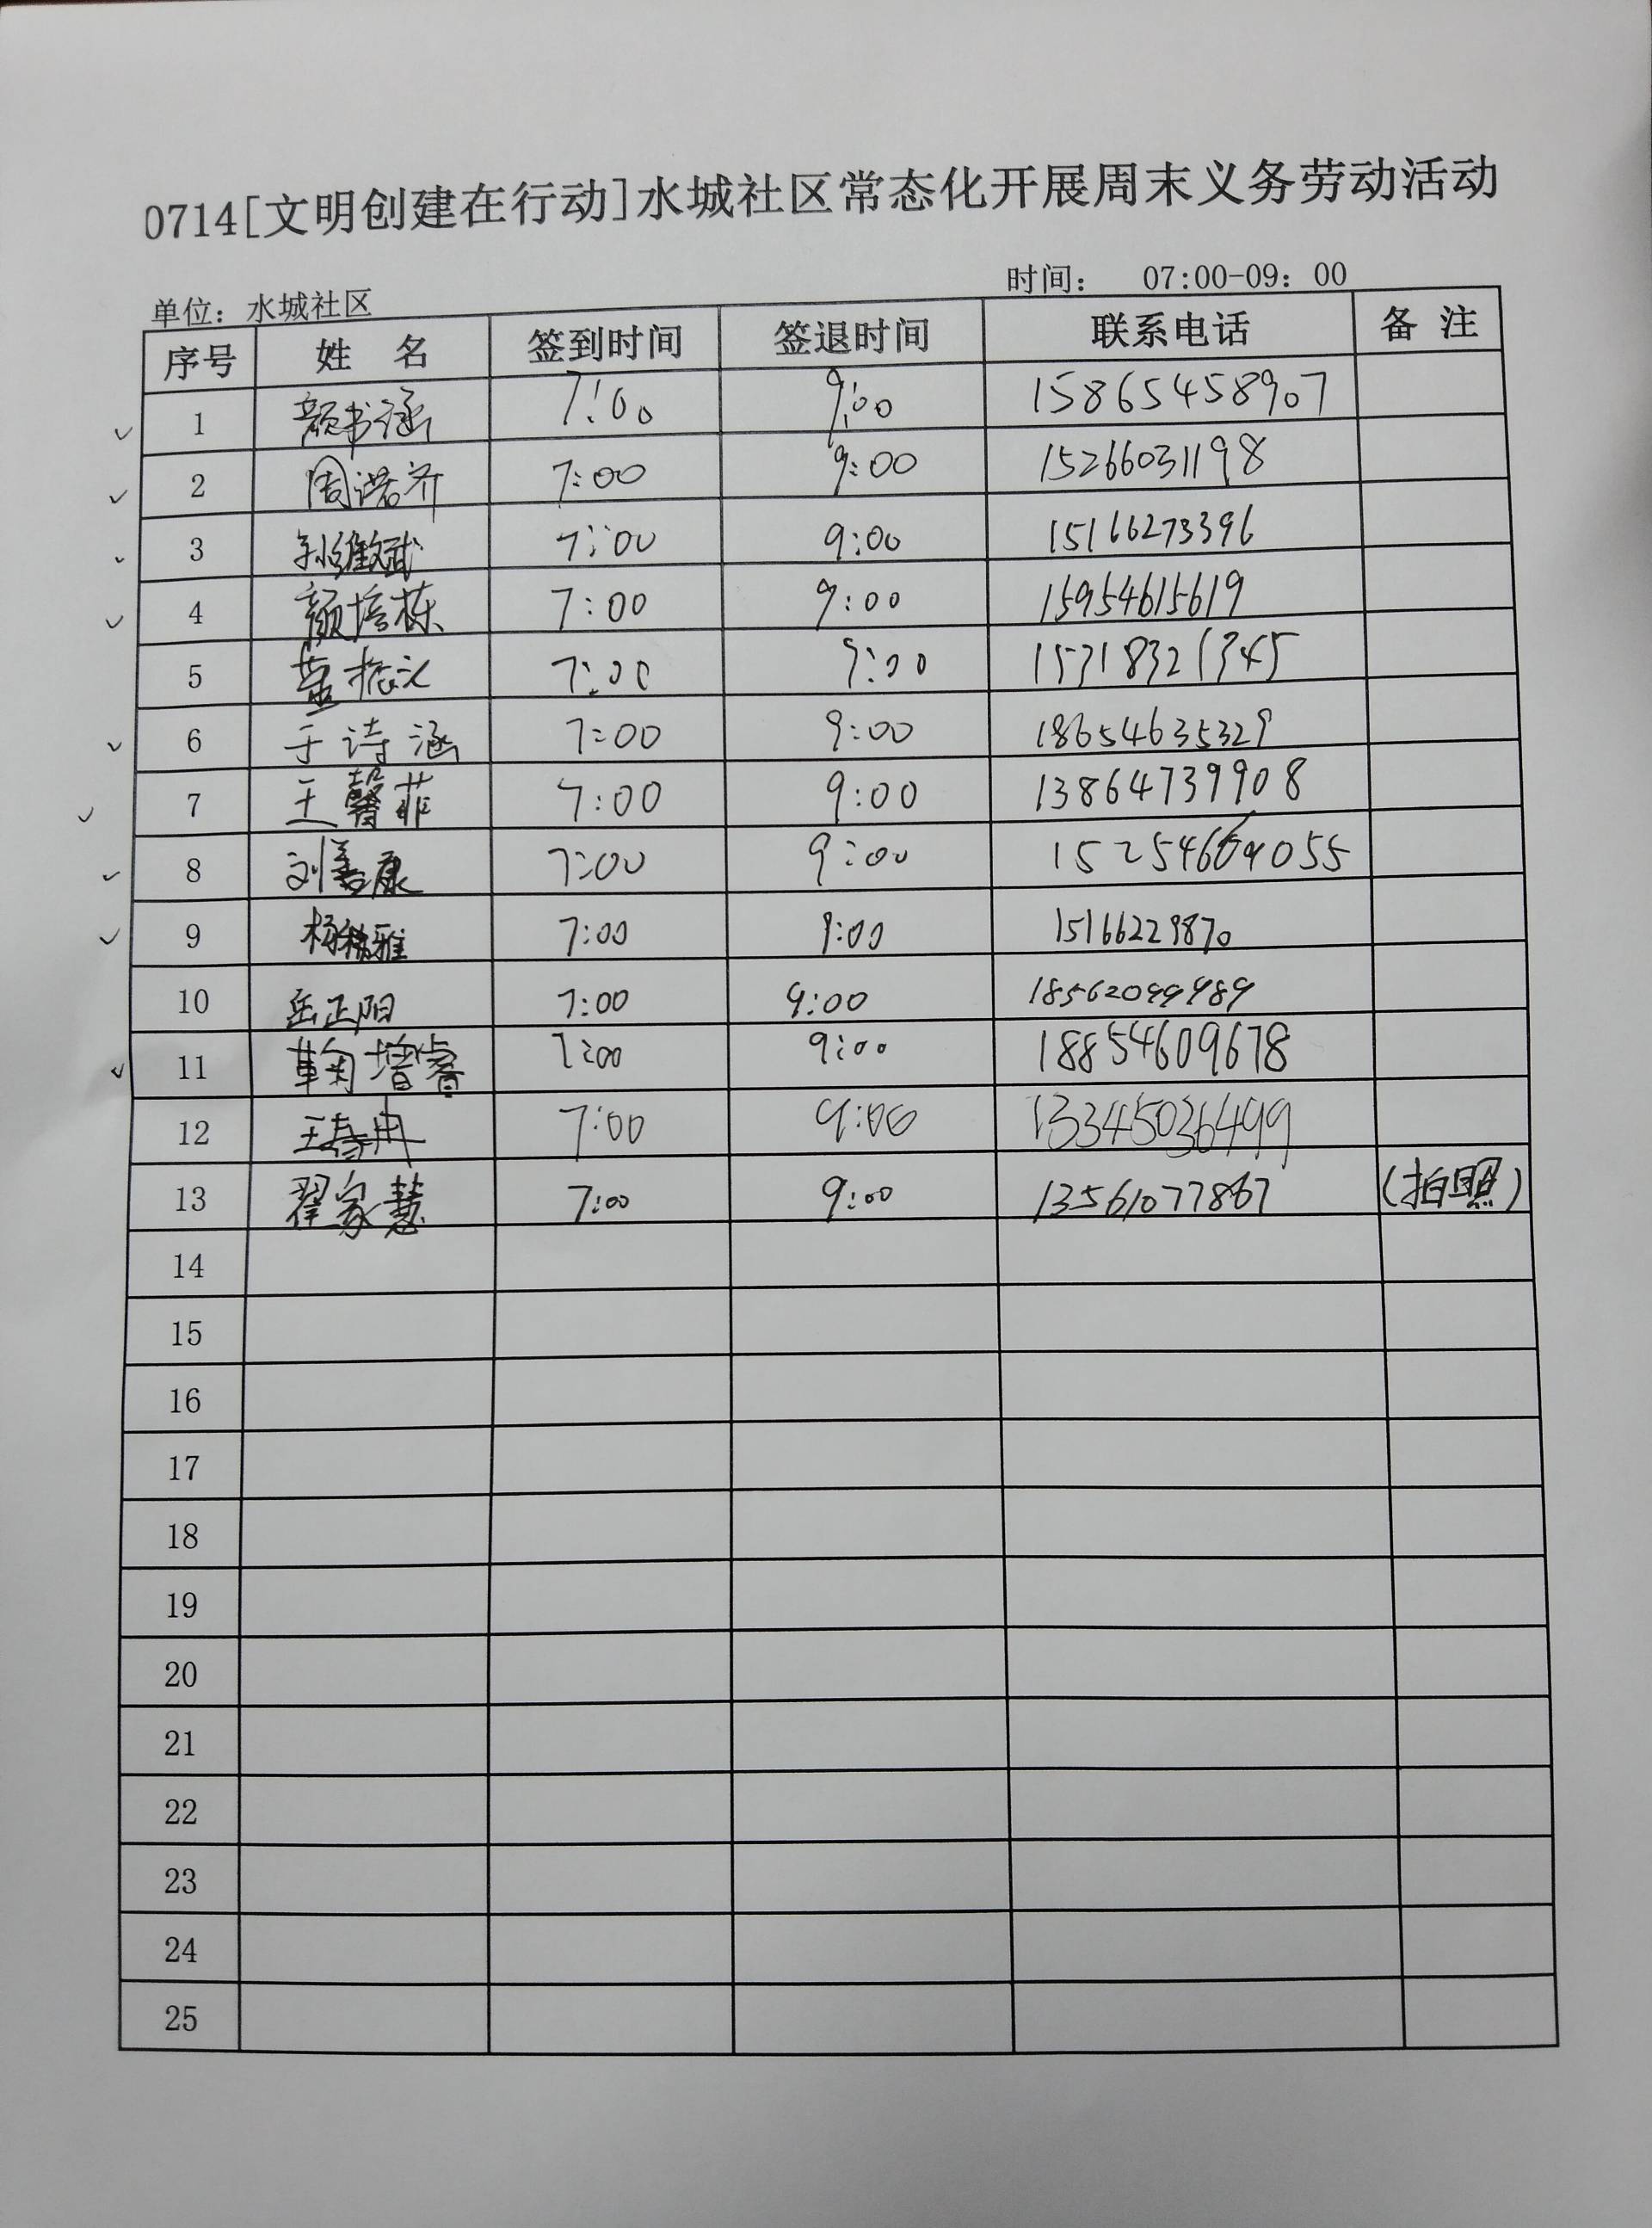 0714[文明创建在行动]水城社区常态化开展周末义务劳动活动
时间： 07:00-09：00
单位：水城社区
序号 姓 名 签到时间 签退时间 联系电话 备 注
1 颜书涵 7:00 9:00 15865458907
2 周诺齐 7:00 9:00 15266031198
3 孙维斌 7:00 9:00 15166273396
4 颜培栋 7:00 9:00 15954615619
5 振 7:00 9:00 15718321345
6 于诗涵 7:00 9:00 18654635329
7 王馨菲 7:00 9:00 13864739908
8 刘善康 7:00 9:00
9 杨雅 7:00 9:00 15166229870
10 岳正阳 7:00 9:00 18562099989
11 鞠增睿 7:00 9:00 18854609678
12 王春冉 7:00 9:00 13345036499
13 翟家慧 7:00 9:00 13561077867 (拍照)
14
15
16
17
18
19
20
21
22
23
24
25